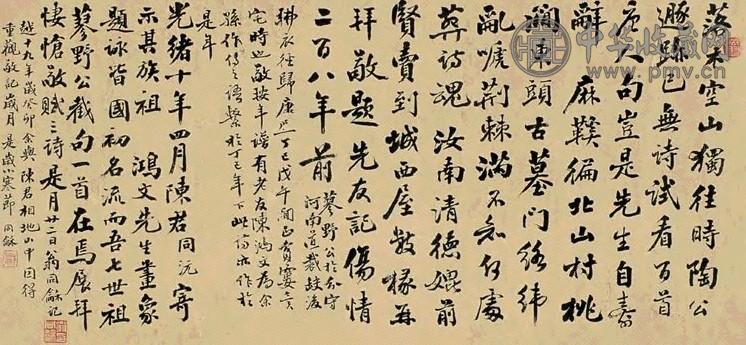 落木空山獨往時陶公
遯跡已無詩試看百首
唐人句豈是先生自壽
辭 麻鞵徧北山村桃
澗東頭古墓門絡緯
亂嗁荆棘滿不知何處
葬詩魂 汝南清德媲前
賢賣到城西屋數椽再
拜敬題先友記傷情
二百八年前
蓼野公於
河南道裁缺後
拂衣徑歸康熙丁巳戊午間正賣
宅時也敬按年譜有老友陳鴻文為余
孫作傳之語繫於丁巳年下此 亦作於
是年
光緒十年四月陳君同沅寄
示其族祖 鴻文先生畫象
題詠皆國初名流而吾七世祖
蓼野公截句一首在焉展拜
悽愴敬賦三詩 是月廿二日翁同龢記
越十九年歲癸卯余與陳君相地山中因得
重觀敬記歲月 是歲小寒節 同龢
中华收藏网
www.pmv.cn